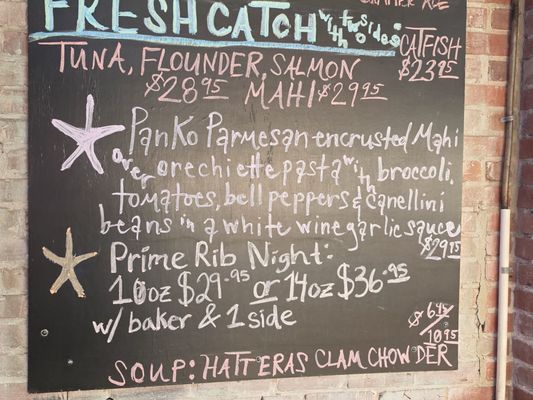 SUMMER ALE
FRESH CATCH with two sides
CATFISH
$23.95
TUNA, FLOUNDER, SALMON
$28.95 MAHI $29.95
Panko Parmesan encrusted Mahi
over orechiette pasta with broccoli,
tomatoes, bell peppers & canellini
beans in a white wine garlic sauce
$29.95
Prime Rib Night:
10oz $29.95 or 14oz $36.95
w/ baker & 1 side
$6.95/
10.95
SOUP: HATTERAS CLAM CHOWDER